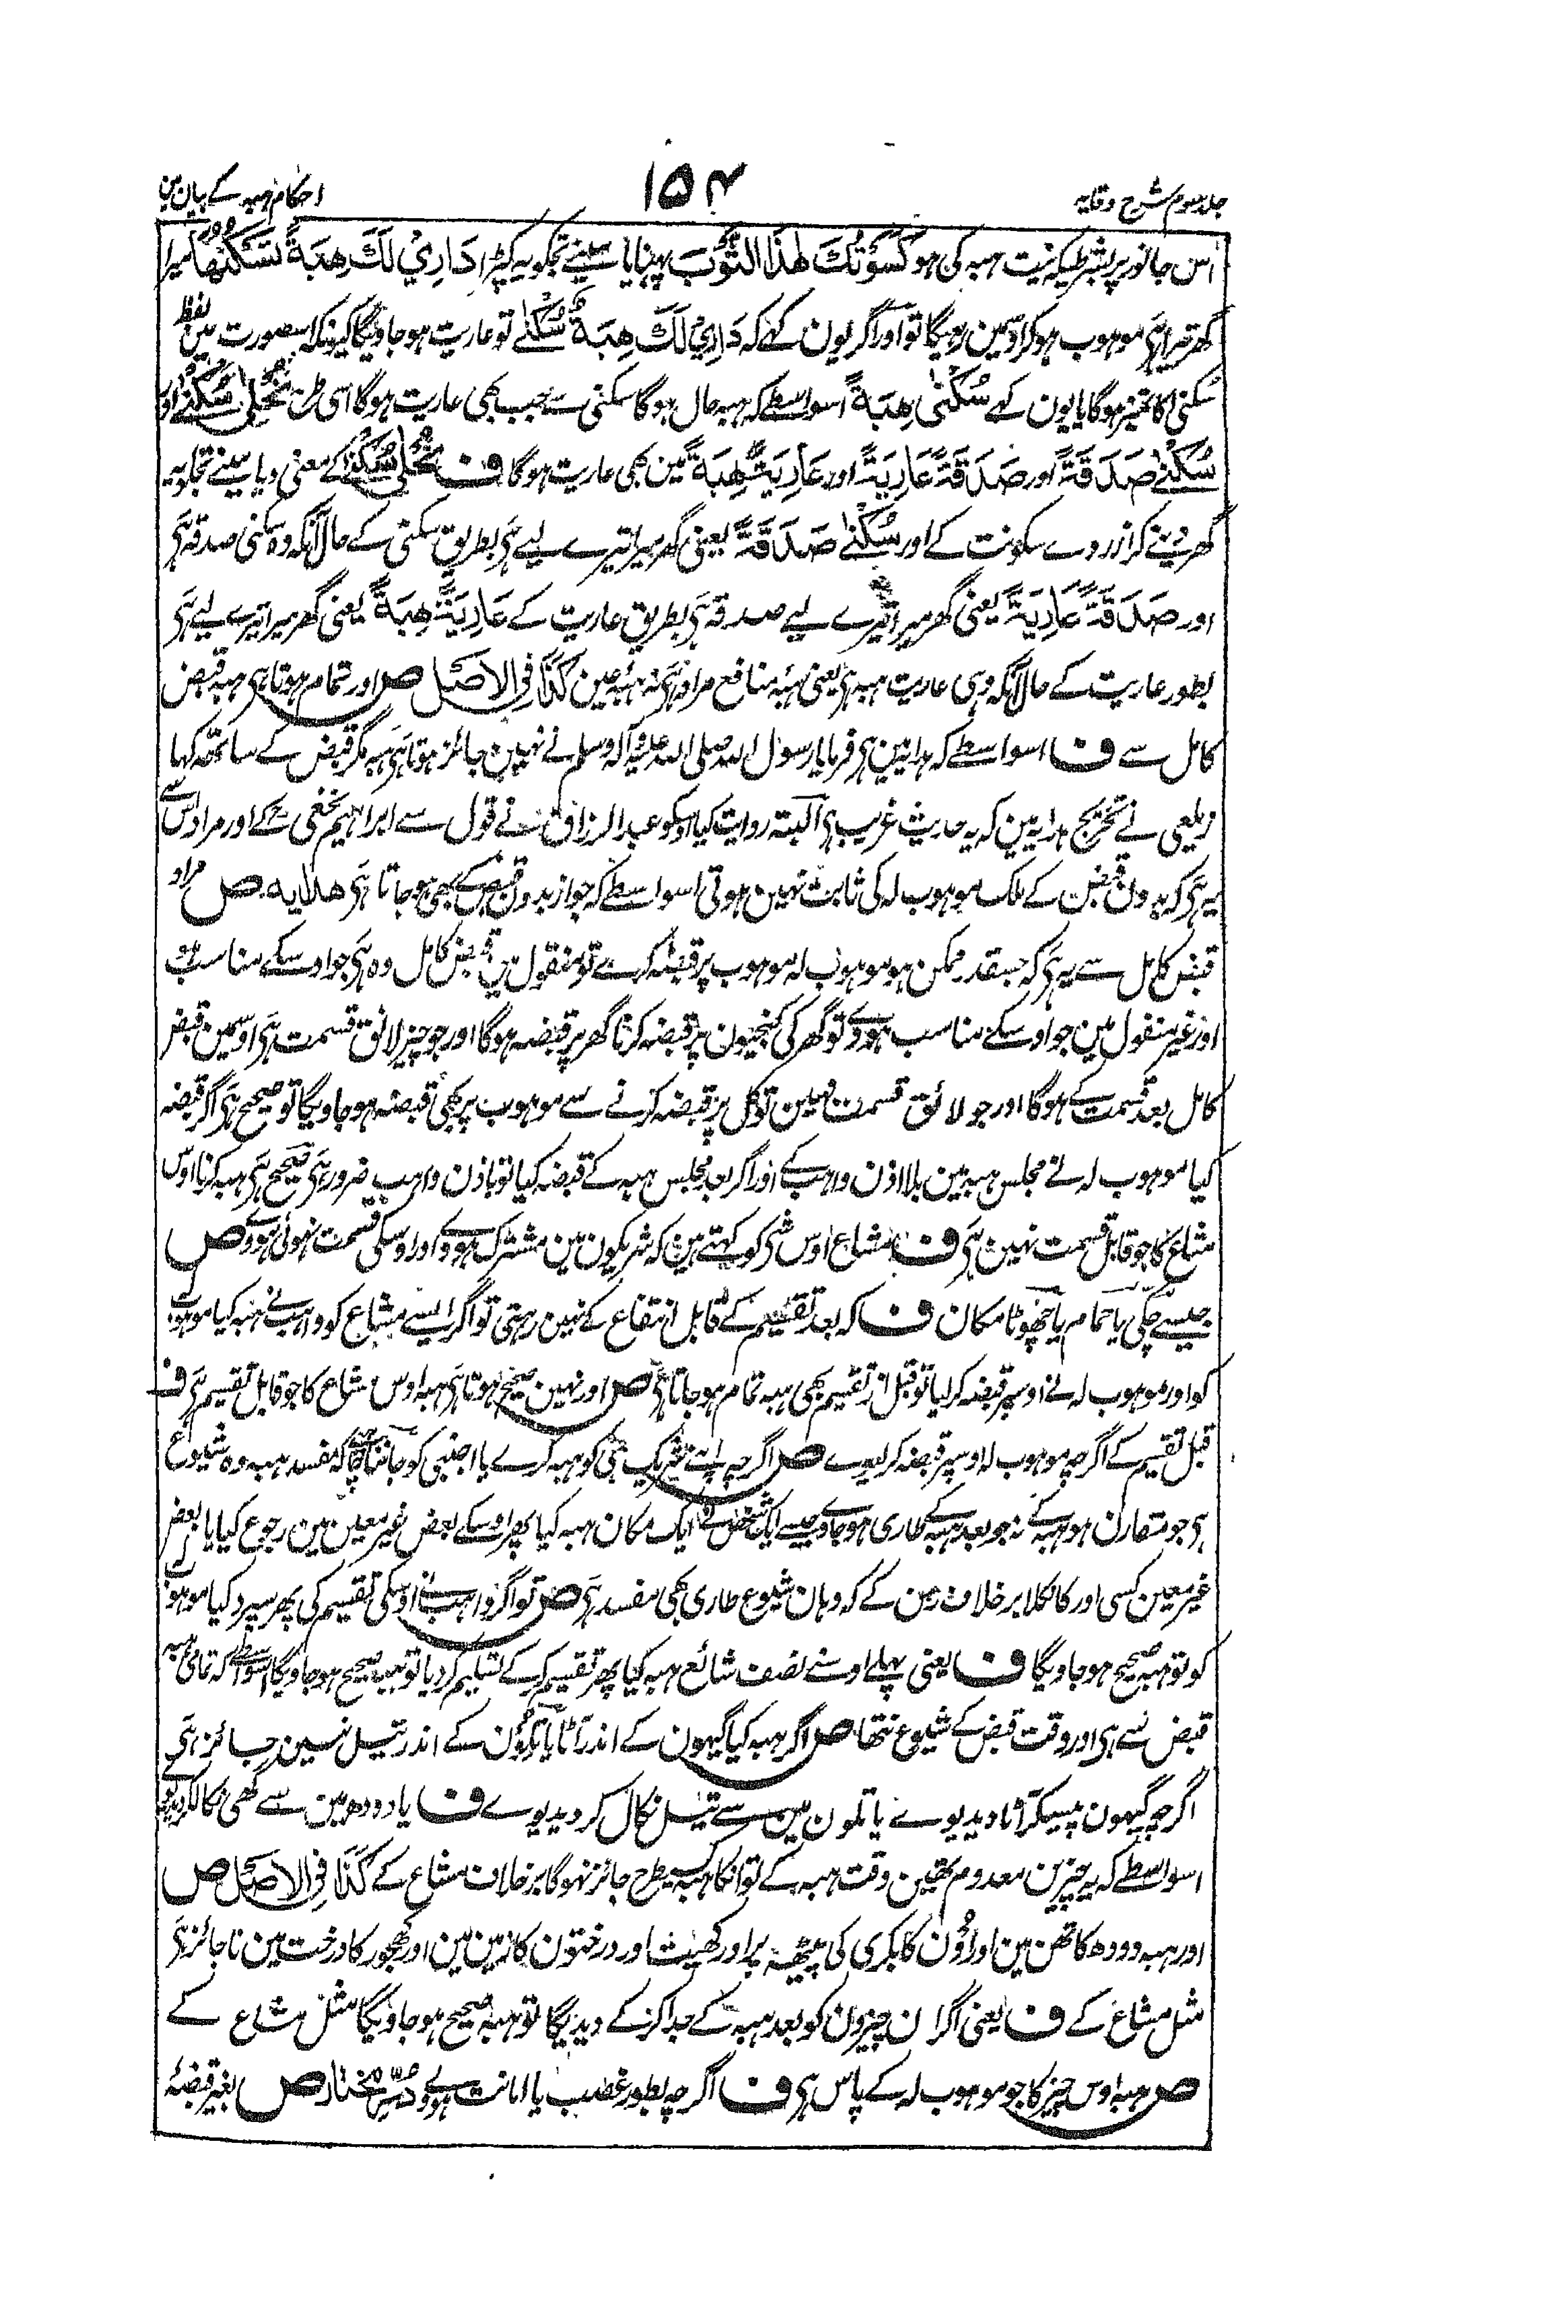 جلد سوم شرح وقایہ
۱۵۴
احکام ہبہ کے بیان مین
اس جانور پر بشرطیکہ نیت ہبہ کی ہو كَسَوْتُكَ هٰذَا الثَّوْبَ پہنایا مینے تجکو یہ کپڑا دَارِيْ لَكَ هِبَةً تَسْكُنُهَا میرا
گھر تیرا ہی موہوب ہو کر اوسمین رہیگا تو اور اگر یون کہے کہ دَارِيْ لَكَ هِبَةً سُكْنٰے تو عاریت ہو جاویگا کیونکہ اسصورت مین لفظ
سکنی کا تمیز ہوگا یا یون کہے سُكْنٰى هِبَةً اسواسطے کہ ہبہ حال ہوگا سکنی سے جب بھی عاریت ہوگا اسی طرح نُحْلٰى سُكْنٰے اور
سُكْنٰے صَدَقَةً اور صَدَقَةً عَارِيَةً اور عَارِيَةً هِبَةً مین بھی عاریت ہوگا ف نُحْلٰى سُكْنٰے کے معنی دیا مینے تجکو یہ
گھر دینے کر از روے سکونت کے اور سُكْنٰے صَدَقَةً یعنی گھر میرا تیرے لیے ہی بطریق سکنی کے حال آنکہ وہ سکنی صدقہ ہی
اور صَدَقَةً عَارِيَةً یعنی گھر میرا تیرے لیے صدقہ ہی بطریق عاریت کے عَارِيَةً هِبَةً یعنی گھر میرا تیرے لیے ہی
بطور عاریت کے حال آنکہ وہی عاریت ہبہ ہی یعنی ہبۂ منافع مراد ہی نہ ہبۂ عین كَذَا فِي الْاَصْل ص اور تمام ہوتا ہی ہبہ قبض
کامل سے ف اسواسطے کہ ہدایہ مین ہی فرمایا رسول اللہ صلی اللہ علیہ وآلہ وسلم نے نہین جائز ہوتا ہی ہبہ مگر قبض کے ساتھ کہا
زیلعی نے تخریج ہدایہ مین کہ یہ حدیث غریب ہی البتہ روایت کیا اوسکو عبد الرزاق نے قول سے ابراہیم نخعی کے اور مراد اس سے
یہ ہی کہ بدون قبض کے ملک موہوب لہ کی ثابت نہین ہوتی اسواسطے کہ جواز بدون قبض کے بھی ہو جاتا ہی هدایه ص مراد
قبض کامل سے یہ ہی کہ جسقدر ممکن ہو موہوب لہ موہوب پر قبضہ کرے تو منقول مین قبض کامل وہ ہی جو اوسکے مناسب ہو
اور غیر منقول مین جو اوسکے مناسب ہووے تو گھر کی کنجیون پر قبضہ کرنا گھر پر قبضہ ہوگا اور جو چیز لائق قسمت ہی اوسمین قبض
کامل بعد قسمت کے ہوگا اور جو لائق قسمت نہین تو کل پر قبضہ کرنے سے موہوب پر بھی قبضہ ہو جاویگا تو صحیح ہی اگر قبضہ
کیا موہوب لہ نے مجلس ہبہ مین بلا اذن واہب کے اور اگر بعد مجلس ہبہ کے قبضہ کیا تو باذن واہب ضرور ہی صحیح ہی ہبہ کرنا اوس
مشاع کا جو قابل قسمت نہین ہی ف مشاع اوس شی کو کہتے ہین کہ شریکون مین مشترک ہووے اور اوسکی قسمت نہوئی ہووے ص
جیسے چکی یا حمام یا چھوٹا مکان ف کہ بعد تقسیم کے قابل انتفاع کے نہین رہتی تو اگر ایسے مشاع کو واہب نے ہبہ کیا موہوب لہ
کو اور موہوب لہ نے اوسپر قبضہ کر لیا تو قبل از تقسیم بھی ہبہ تمام ہو جاتا ہی ص اور نہین صحیح ہوتا ہی ہبہ اوس مشاع کا جو قابل تقسیم ہی ف
قبل تقسیم کے اگرچہ موہوب لہ اوسپر قبضہ کر لیوے ص اگرچہ اپنے شریک ہی کو ہبہ کرے یا اجنبی کو جاننا چاہیے کہ مفسد ہبہ وہ شیوع
ہی جو مقارن ہو ہبہ کے نہ جو بعد ہبہ کے طاری ہو جاوے جیسے ایک شخص نے ایک مکان ہبہ کیا پھر اوسکے بعض غیر معین مین رجوع کیا یا بعض
غیر معین کسی اور کا نکلا بر خلاف رہن کے کہ وہان شیوع طاری بھی مفسد ہی ص تو اگر واہب نے اوسکی تقسیم کی پھر سپرد کیا موہوب لہ
کو تو ہبہ صحیح ہو جاویگا ف یعنی پہلے اوسنے نصف شائع ہبہ کیا پھر تقسیم کر کے تسلیم کر دیا تو ہبہ صحیح ہو جاویگا اسواسطے کہ تمامی ہبہ
قبض سے ہی اور وقت قبض کے شیوع نتھا ص اگر ہبہ کیا گیہون کے اندر آٹا یا تلون کے اندر تیل نہین جائز ہی
اگرچہ گیہون پیسکر آٹا دیدیوے یا تلون مین سے تیل نکال کر دیدیوے ف یا دودھ مین سے گھی نکالکر دیدیوے
اسواسطے کہ یہ چیزین معدوم تھین وقت ہبہ کے تو انکا ہبہ کسیطرح جائز نہوگا بر خلاف مشاع کے كَذَا فِي الْاَصْل ص
اور ہبہ دودھ کا تھن مین اور اون کا بکری کی پیٹھ پر اور کھیت اور درختون کا زمین مین اور کھجور کا درخت مین ناجائز ہی
مثل مشاع کے ف یعنی اگر ان چیزون کو بعد ہبہ کے جدا کر کے دیدیگا تو ہبہ صحیح ہو جاویگا مثل مشاع کے
ص ہبہ اوس چیز کا جو موہوب لہ کے پاس ہی ف اگرچہ بطور غصب یا امانت ہووے دُرِّ مختار ص بغیر قبضۂ